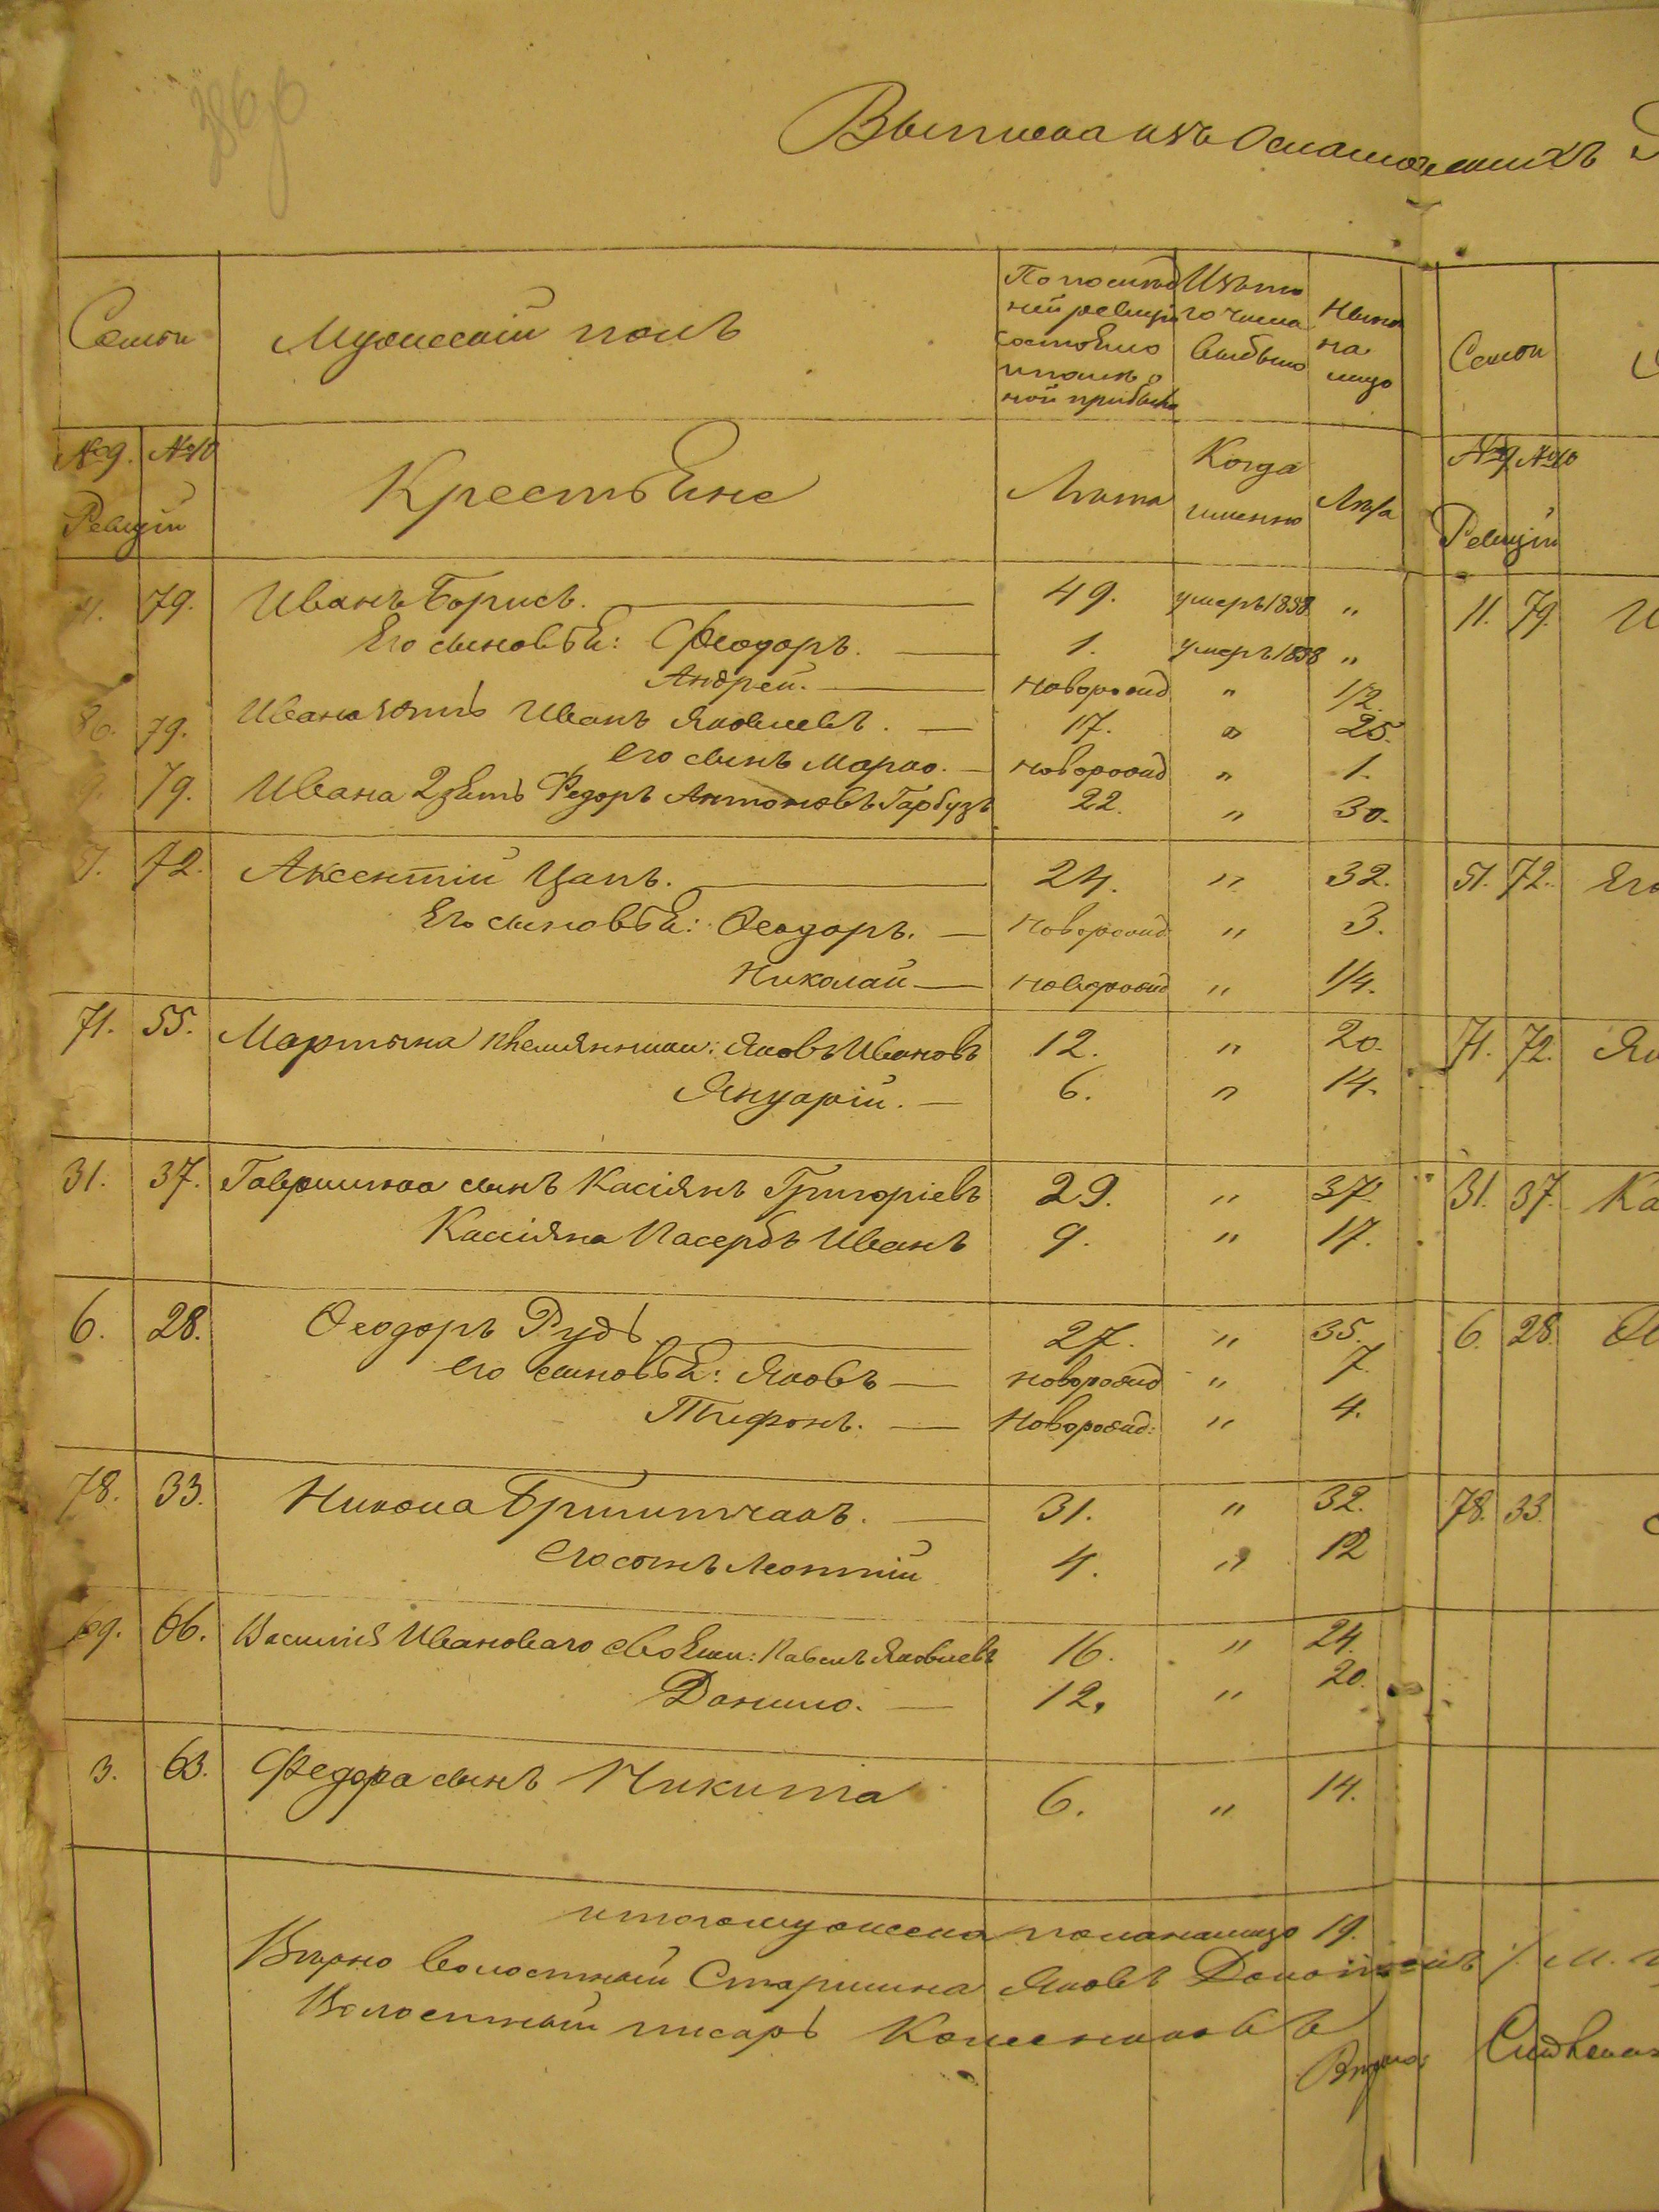 Выписка изъ
Семьи Мужескій полъ По послѣд Изъто Нынѣ Семьи
ней ревизіи го числа на
состояло выбыло лицо
и послѣ о
ной прибыло
№9. №10 Крестьяне Лѣта Когда Лѣта №9 №10
Ревизіи именно Ревизіи
79. Иванъ Борисъ. 49. умеръ 1858 " 11. 79. И
Его сыновья: Феодоръ. 1. умеръ 1858 "
Андрей. новорожд " 1/2.
80. 79. Ивана зять Иванъ Яковлевъ. 17. " 25.
его сынъ Марко. новорожд " 1.
79. Ивана 2 зять Федоръ Антоновъ Гарбузъ 22. " 30.
72. Аксентій Цапъ. 24. " 32. 51. 72. Его
Его сыновья: Ѳеодоръ. Новорожд " 3.
Николай новорожд " 1/4.
71. 55. Мартына племянники: Яковъ Ивановъ 12. " 20. 71. 72. Як
Януарій. 6. " 14.
31. 37. Гаврилика сынъ Касіянъ Григоріевъ 29. " 37. 31. 37. Ка
Кассіяна Пасербъ Иванъ 9. " 17.
6. 28. Ѳеодоръ Рудь 27. " 35. 6. 28.
его сыновья: Яковъ новорожд " 7.
Тифонъ. Новорожд: " 4.
78. 33. Никола 31. " 32. 78. 33.
Его сынъ Леонтій 4. " 12
69. 66. Василія Ивановаго свояки: Павелъ Яковлевъ 16. " 24.
Данило. 12. " 20.
3. 63. Федора сынъ Никита 6. " 14.
итого мужеска пола налицо 19.
Вѣрно Волостный Старшина Яковъ М.
Волостный писарь
Вѣрно: